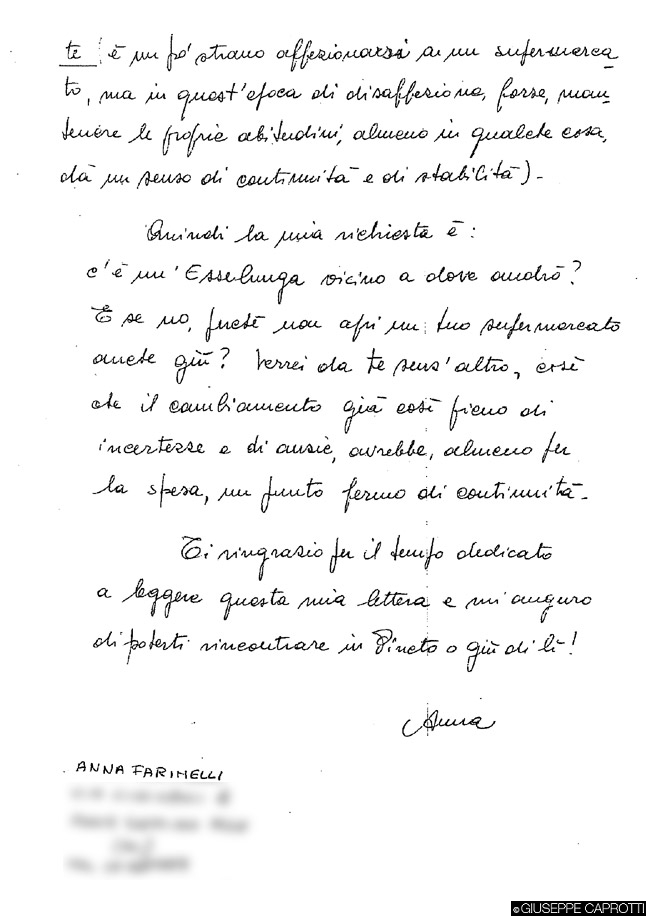 te (è un pò strano affezionarsi a un supermerca
to, ma in quest'epoca di disaffezione, forse, man
tenere le proprie abitudini, almeno in qualche cosa,
dà un senso di continuità e di stabilità) -
Quindi la mia richiesta è:
c'è un'Esselunga vicino a dove andrò?
E se no, perchè non apri un tuo supermercato
anche giù? Verrei da te senz'altro, così
che il cambiamento già così pieno di
incertezze e di ansie, avrebbe, almeno per
la spesa, un punto fermo di continuità -
Ti ringrazio per il tempo dedicato
a leggere questa mia lettera e mi auguro
di poterti rincontrare in Pineto o giù di lì!
Anna
ANNA FARINELLI
©GIUSEPPE CAPROTTI